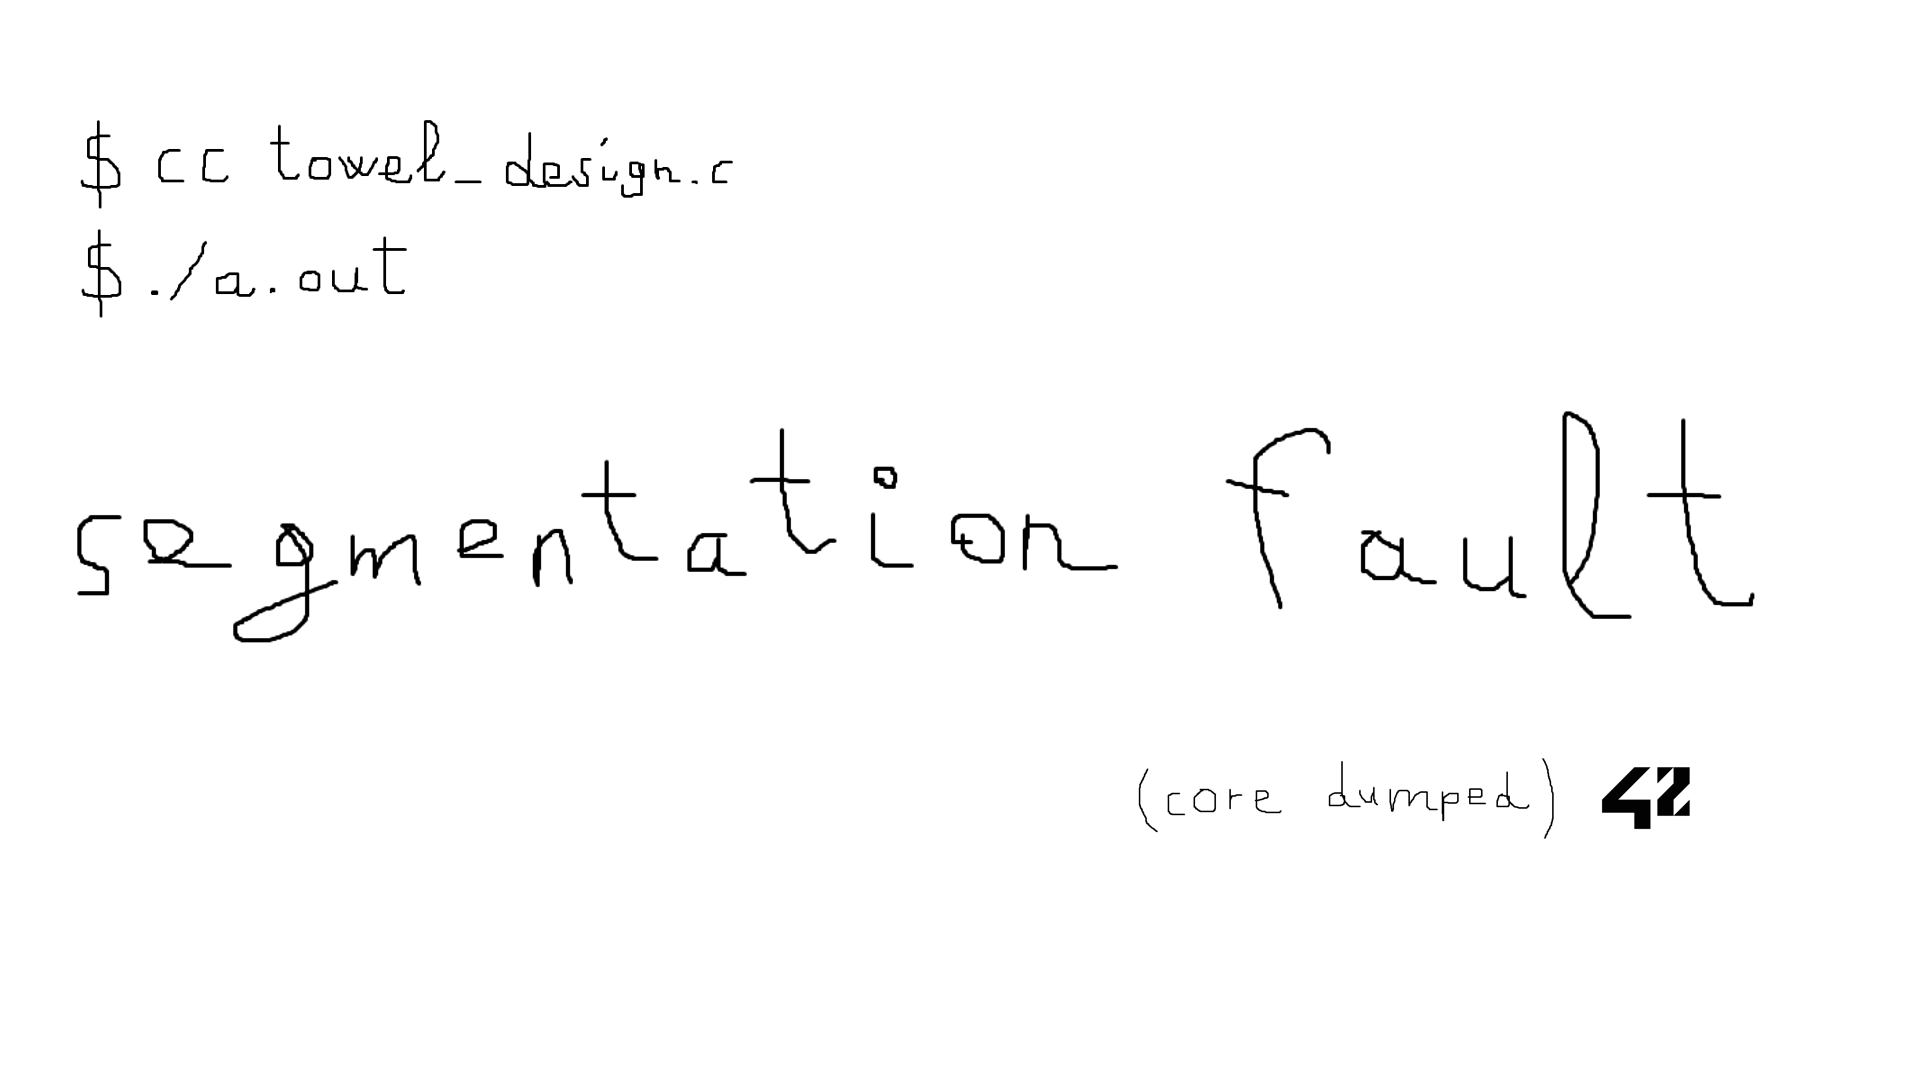 $ cc towel_design.c
$ ./a.out
segmentation fault
(core dumped) 42